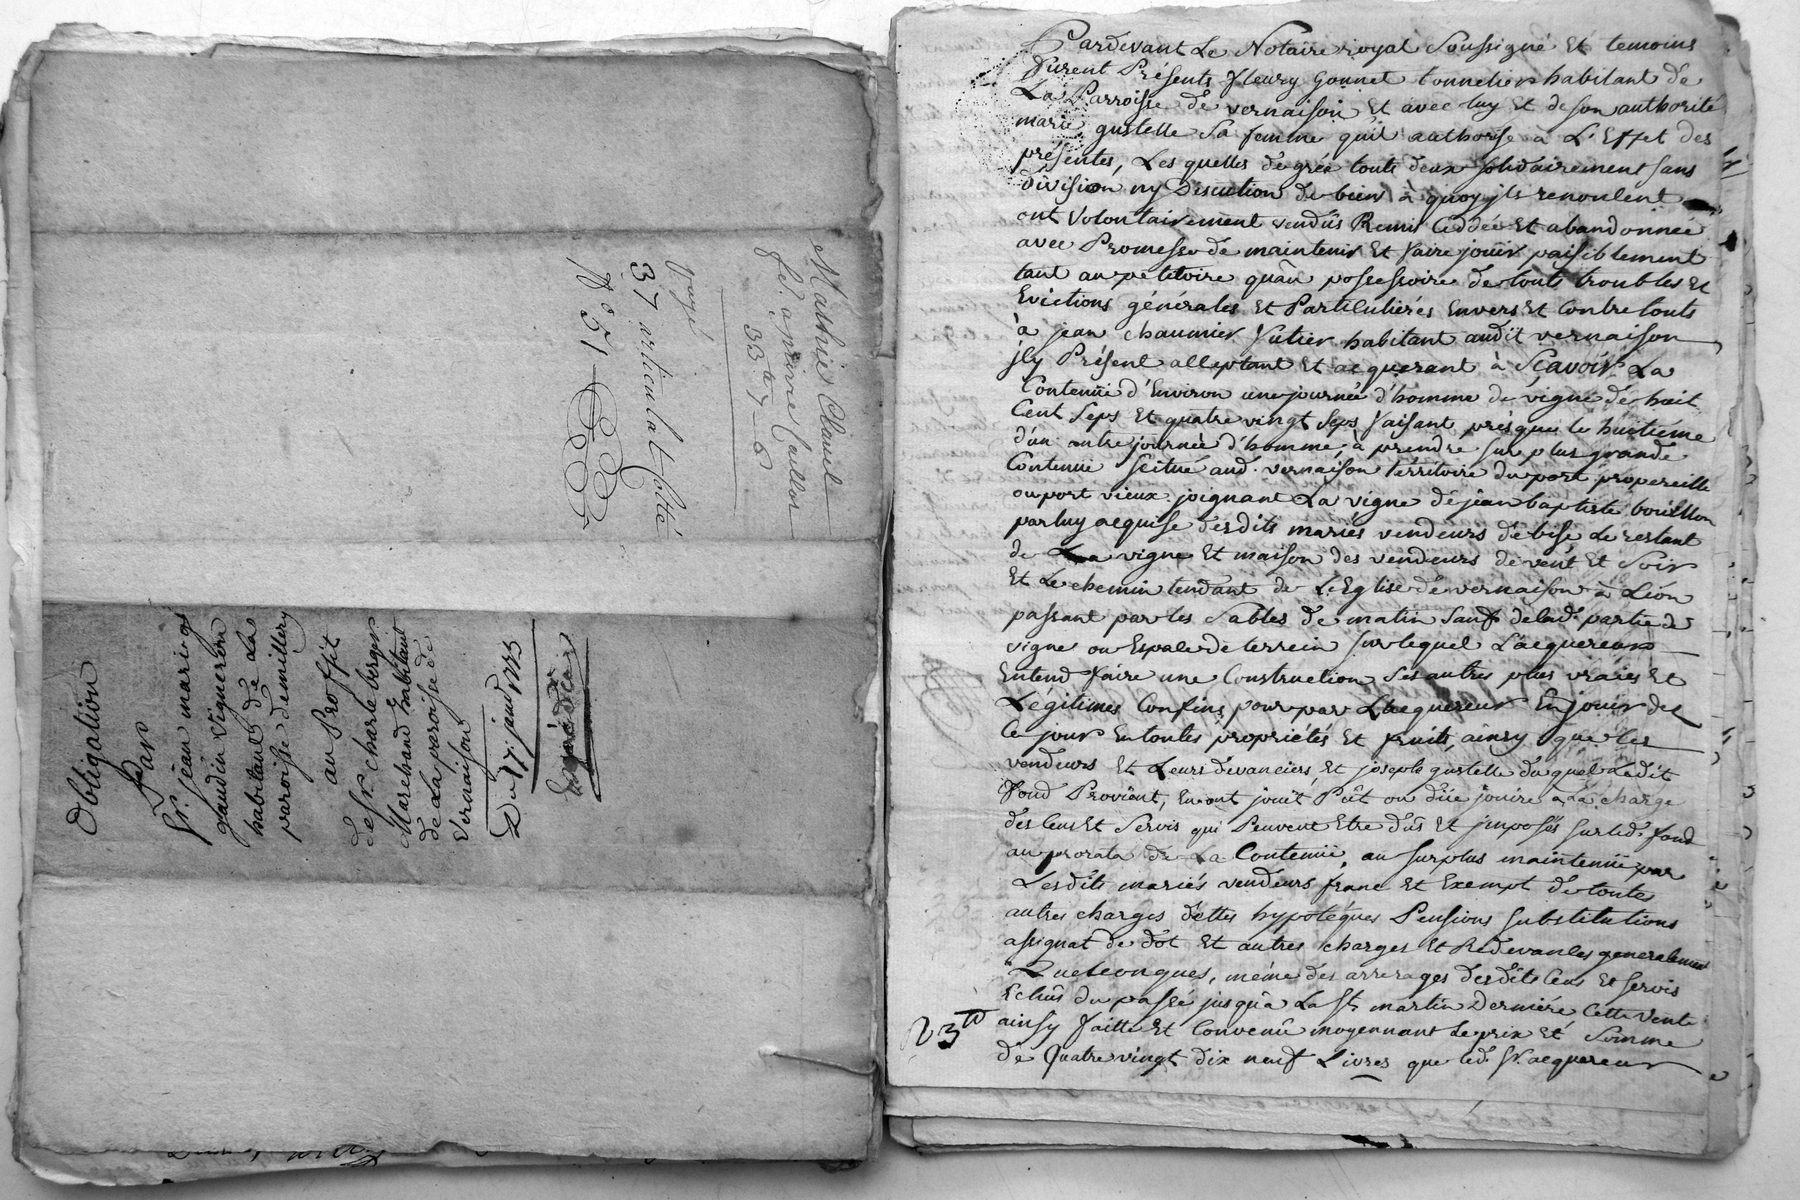 Mathieu Clauel
37 articulat Cotté
N° 51
33 a 7 - 6
Obligation
Par
Sr. jean marie
gaudin Vigneron
habitant de La
paroisse de millery
au Proffit
de Sr. charle berger
Marchand habitant
de La paroisse de
Vernaison
Du 17. janvr 1773
Expédiée
Pardevant Le Notaire royal Soussigné Et temoins
Furent Présents fleury Gonnet tonnelier habitant de
La Parroisse de vernaison Et avec luy Et de son authorité
marie gustelle Sa femme qu'il authorise a L'Effet des
présentes, Les quelles de gréz touts deux solidairement sans
division ny Discution de biens à quoy jls renonsent
ont Volontairement vendûs Remis Ceddée Et abandonnée
avec Promesse de maintenir Et faire jouir paisiblement
tant au petitoire quân possessoire de touts troubles Et
Evictions générales Et Particuliérés Envers Et Contre touts
à jean chaumier Futier habitant audit vernaison
jcy Présent acceptant Et acquerant à Sçavoir La
Contenüe d'Environ une journée d'homme de vigne de huit
Cent Seps Et quatre vingt Seps faisant présque le huitiéme
d'un autre journée d'homme, à prendre Sur plus grande
Contenue Scitué aud. vernaison territoire du port
ou port vieux joignant La vigne de jean baptiste bouillon
par luy acquise desdits mariés vendeurs de bise Le restant
de La vigne Et maison des vendeurs de vent Et Soir
Et Le chemin tendant de L'Eglise de vernaison à Lion
passant par les Sables de matin Sauf de lad. partie de
vigne ou Espace de terrein sur lequel L'acquereur
Entend faire une Construction Ses autres plus vraies Et
Légitimes Confins pour par L'acquereur En jouir de
Ce jour En toutes propriétés Et fruits, ainsy que les
vendeurs Et Leurs devanciers Et joseph gustelle du quel Ledit
Fond Provient, En ont jouit Pût ou dûe jouire a La charge
des Cens Et Servis qui Peuvent Etre dûs Et jmposés sur led. fond
au prorata de La Contenüe, au surplus maintenüe par
Lesdits mariés vendeurs franc Et Exempt de toutes
autres charges dettes hypotéques Pensions substitutions
assignat de dot Et autres charges Et Redevances generalement
Quelconques, même des arrerages desdits Cens Et servis
Echûs du passé jusqu'a La St. martin Derniére Cette Vente
ainsy faitte Et Convenû moyennant Le prix Et Somme
de Quatre vingt dix neuf Livres que led. Sr. acquereur